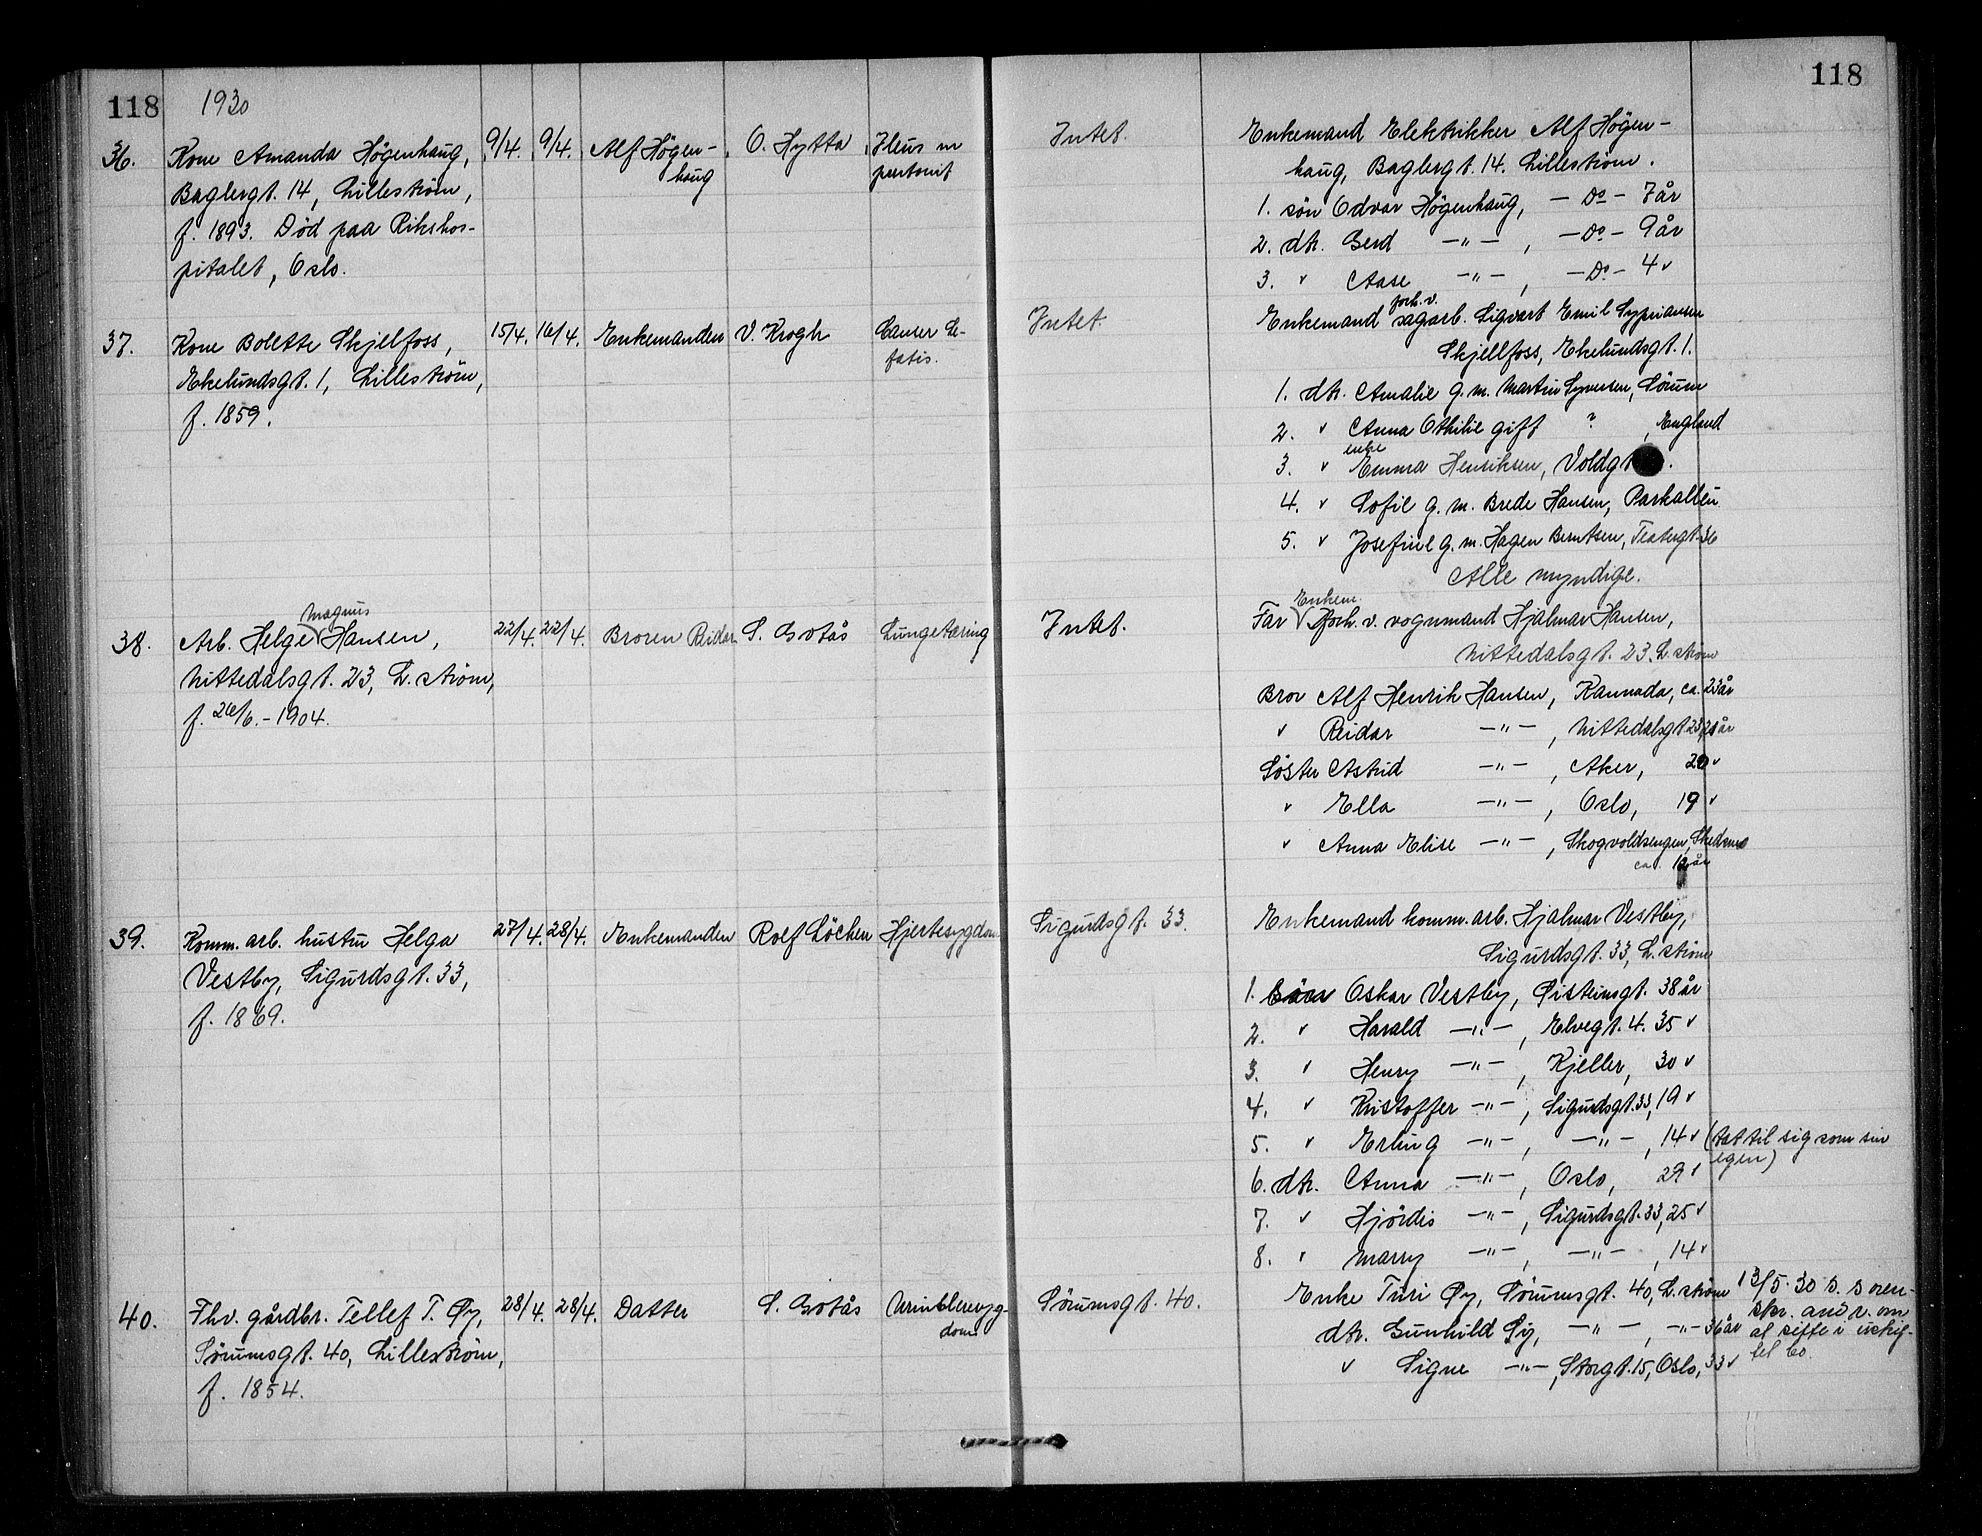 118
1930
118
36.
Kone Amanda Högenhaug,
Baglergt. 14, Lilleström,
f. 1893. Död paa Rikshos-
pitalet, Oslo.
9/4.
9/4.
Alf Högen-
haug
O. Hytta
Ileus m
peritonit
Intet.
Enkemand Elektrikker Alf Högen-
haug, Baglergt. 14. Lilleström.
1. sön Odvar Högenhaug, - Do - 7 år
2. dtr. Gerd -"- , - Do - 9 år
3. " Aase -"- , - Do - 4 "
37.
Kone Bolette Skjelfoss,
Ekelundsgt. 1, Lilleström,
f. 1859.
15/4.
16/4.
Enkemanden
V. Krogh
Cancer
Intet.
forh. v.
Enkemand sagarb. Sigvart Emil Sypriansen
Skjellfoss, Ekelundsgt. 1.
1. dtr. Amalie g. m. Martin Syversen, Sörum
2. " Anna Othilie gift ? , England
enke
3. " Emma Henriksen, Voldgt .
4. " Sofie g. m. Brede Hansen, Parkalleen
5. " Josefine g. m. Hagen Berntsen, Teatergt. 36
Alle myndige.
38.
Magnus
Arb. Helge Hansen,
Nittedalsgt. 23, L. ström,
f. 26/6. - 1904.
22/4.
22/4.
Broren Reidar
S. Gotås
Lungetæring
Intet.
Enkem.
Far forh. v. vognmand Hjalmar Hansen,
Nittedalsgt. 23. L. ström
Bror Alf Henrik Hansen, Kannada, ca. 23 år
" Reidar -"- , Nittedalsgt 23, 21 år
Söster Astrid -"- , Aker, 20 "
" Ella -"- , Oslo, 19 "
" Anna Elise -"- , Skogvoldsengen, Skedsmo
ca. 12 år
39.
Komm. arb. hustru Helga
Vestby, Sigurdsgt. 33,
f. 1869.
27/4.
28/4.
Enkemanden
Rolf Löchen
Hjertesygdom
Sigurdsgt. 33.
Enkemand komm. arb. Hjalmar Vestby,
Sigurdsgt. 33, L. ström
1. Oskar Vestby, Øisteinsgt. 38 år
2. " Harald -"- , Elvegt. 4. 35 "
3. " Henry -"- , Kjeller, 30 "
4. " Kristoffer -"- , Sigurdsgt. 33, 19 "
5. " Erling -"- , -"- , 14 " (tat til sig som sin
egen)
6. dtr. Anna -"- , Oslo, 29 "
7. " Hjördis -"- , Sigurdsgt. 33, 25 "
8. " Marry -"- , -"- , 14 "
40.
Fhv. gårdbr. Tellef T. Øy,
Sörumsgt. 40, Lilleström,
f. 1854.
28/4.
28/4.
Datter
S. Gotås
Urinblæresyg-
dom
Sörumsgt. 40.
Enke Turi Øy, Sörumsgt. 40, L. ström
dtr. Gunhild Øy, -"- , -"- 36 år
" Signe -"- , Storgt. 15, Oslo, 33 "
13/5-30 s. soren-
skr. andr. om
at sitte i uskif-
tet bo.